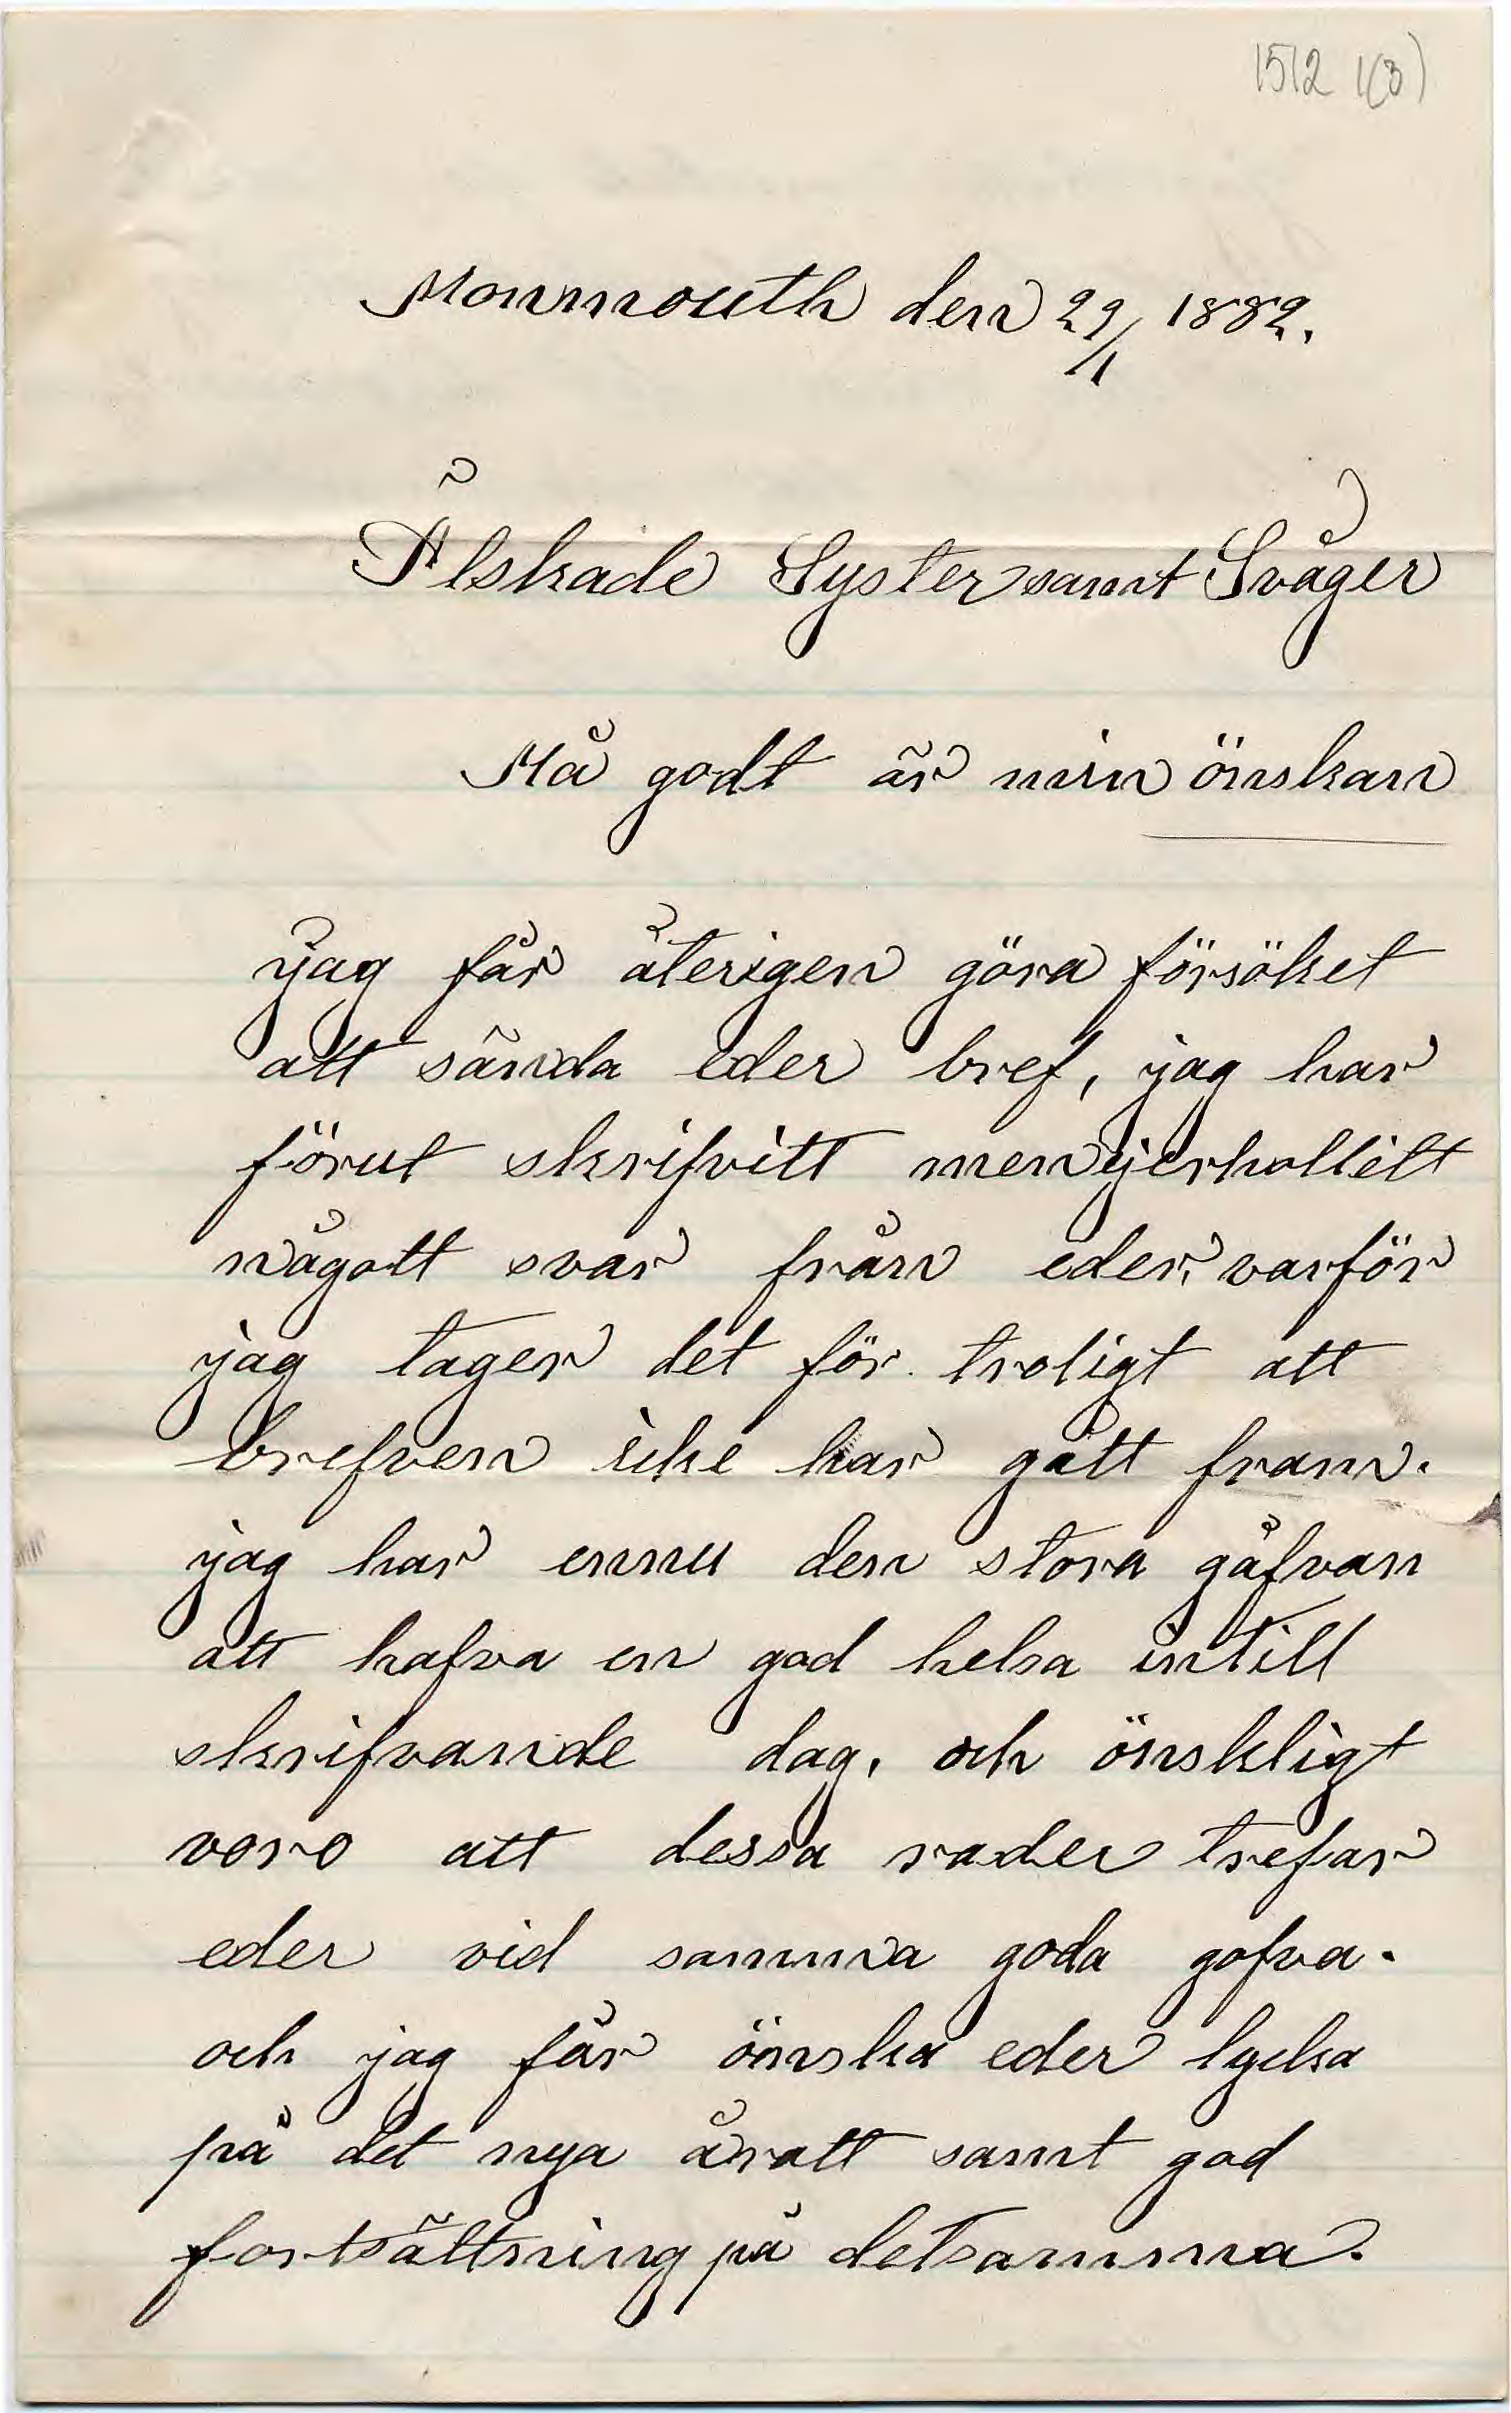 1512 1(3)
Monmouth den 29/1 1882.
Älskade Syster samt Svåger
Må godt är min önskan
jag får återigen göra försöket
att sända eder bref, jag har
förut skrifvitt men ej erhollitt
någott svar från eder, varför
jag tager det för troligt att
brefven icke har gått fram.
jag har ennu den stora gåfvan
att hafva en god helsa intill
skrifvande dag, och önskligt
voro att dessa rader trefar
eder vid samma goda gofva.
och jag får önska eder lycka
på det nya åratt samt god
fortsättning på detsamma.